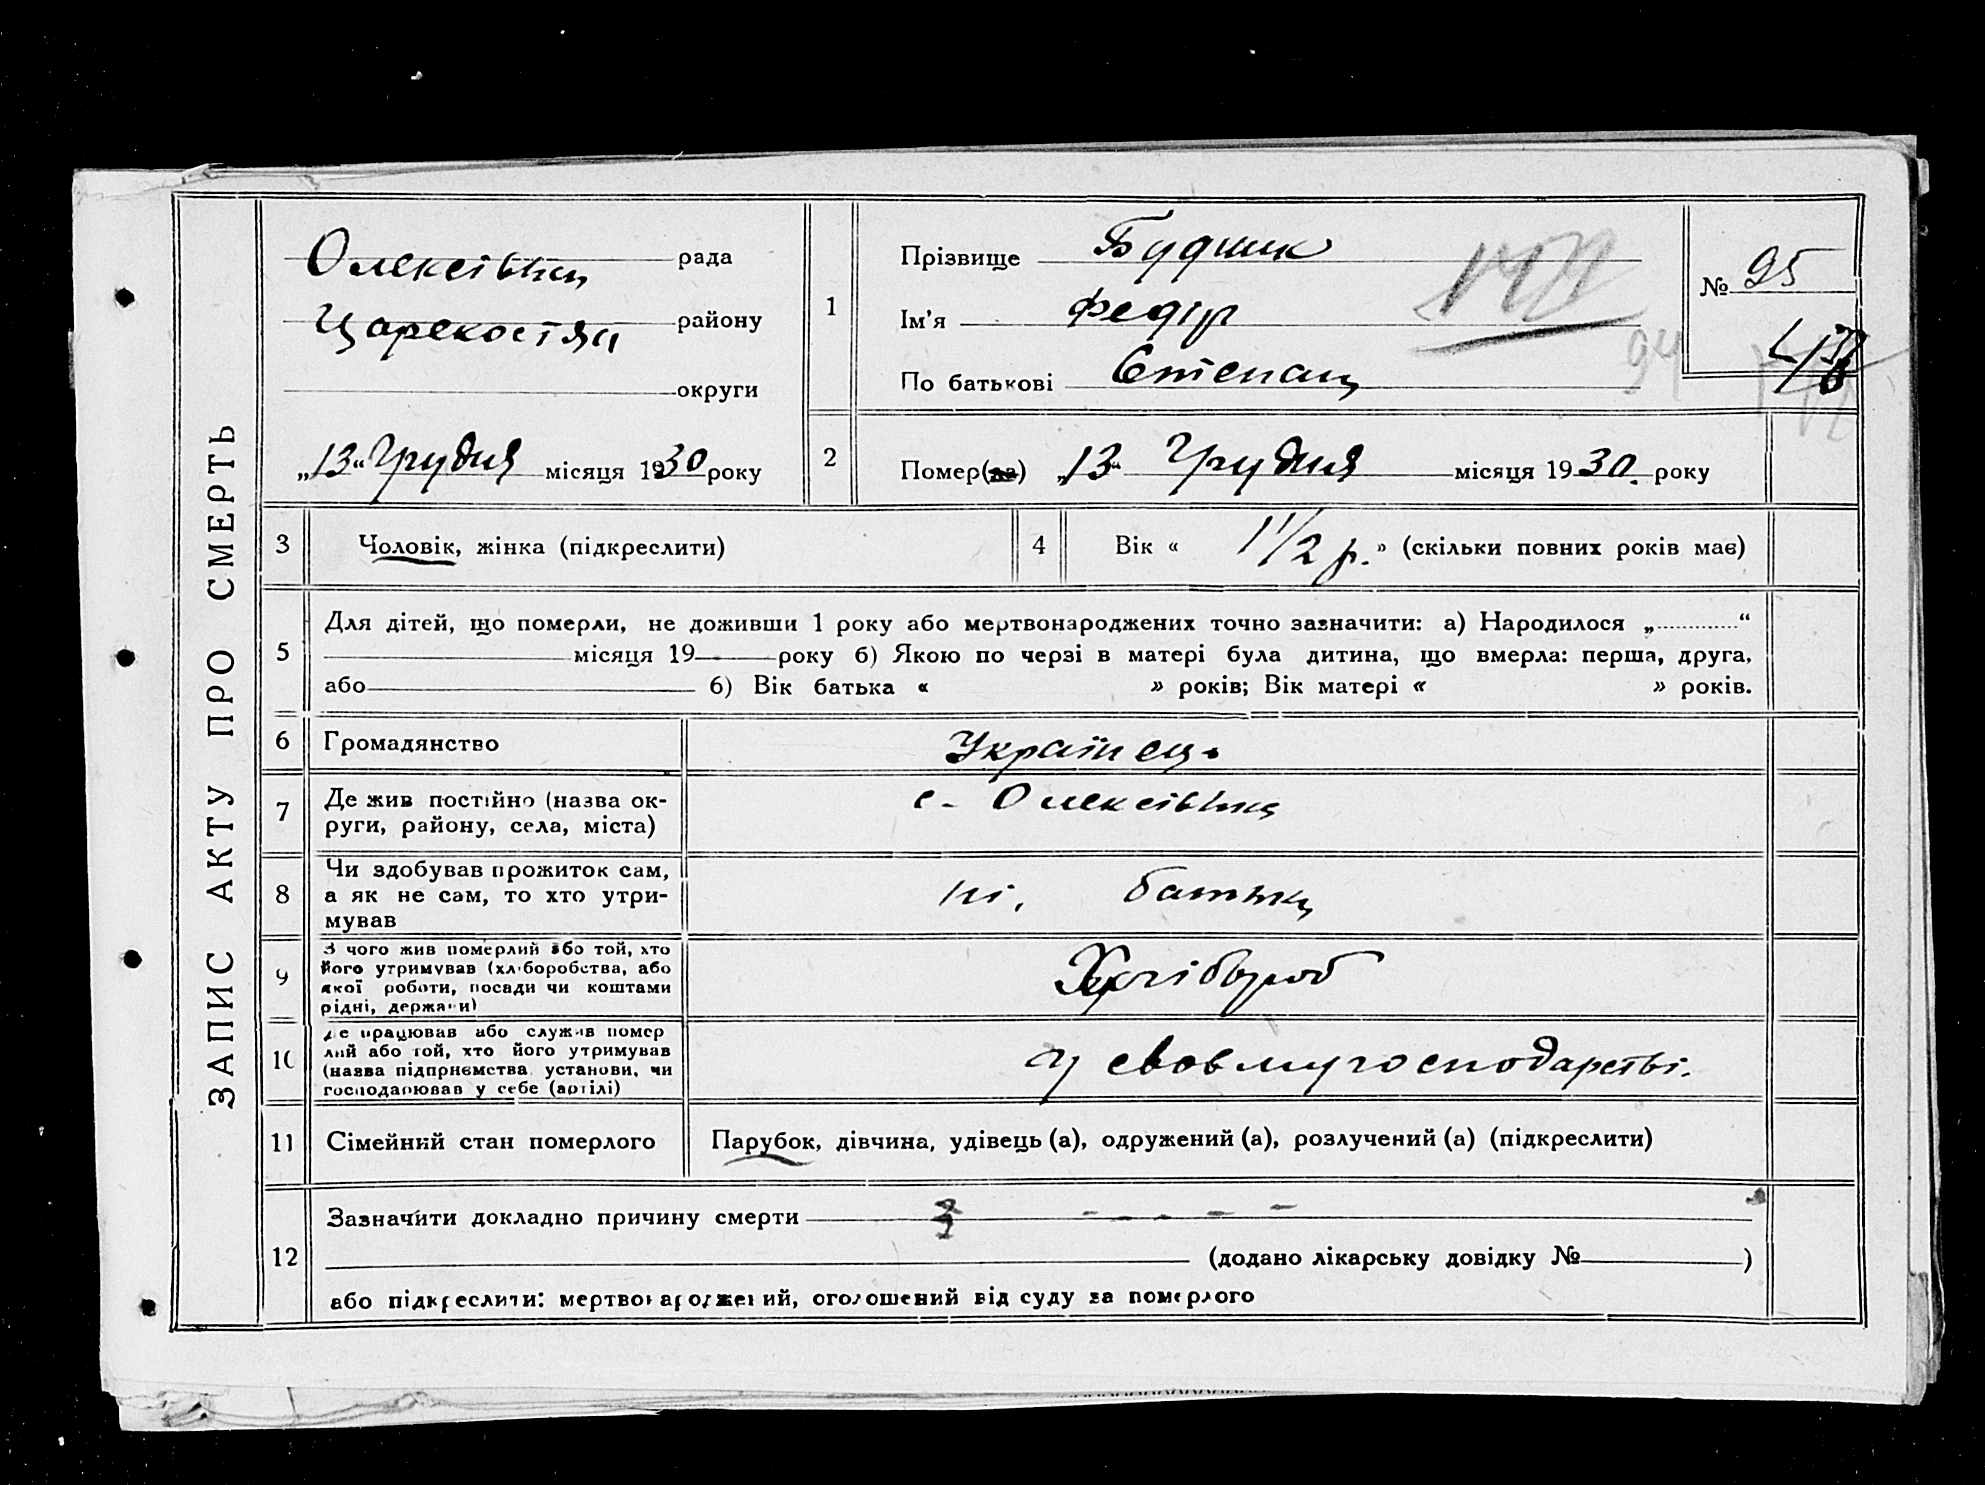 ЗАПИС АКТУ ПРО СМЕРТЬ
Олексіївки рада
району
округи
„13“ Грудня місяця 1930 року
1
Прізвище Будник
Ім'я Федір
По батькові Степан
№ 95
94
2
Помер(ла) „13“ Грудня місяця 1930 року
3
Чоловік, жінка (підкреслити)
4
Вік « 1 1/2 р. » (скільки повних років має)
5
Для дітей, що померли, не доживши 1 року або мертвонароджених точно зазначити: а) Народилося „ “
місяця 19 року б) Якою по черзі в матері була дитина, що вмерла: перша, друга,
або б) Вік батька « » років; Вік матері « » років.
6
Громадянство
Українець
7
Де жив постійно (назва ок-
руги, району, села, міста)
с. Олексіївка
8
Чи здобував прожиток сам,
а як не сам, то хто утри-
мував
ні, батько
9
З чого жив померлий або той, хто
його утримував (хліборобства, або
якої роботи, посади чи коштами
рідні, держави)
Хлібороб
10
Де працював або служив помер
лий або той, хто його утримував
(назва підприємства установи, чи
господарював у себе (артілі)
у своєму господарстві.
11
Сімейний стан померлого
Парубок, дівчина, удівець (а), одружений (а), розлучений (а) (підкреслити)
12
Зазначити докладно причину смерти
(додано лікарську довідку № )
або підкреслити: мертвонароджений, оголошений від суду за померлого